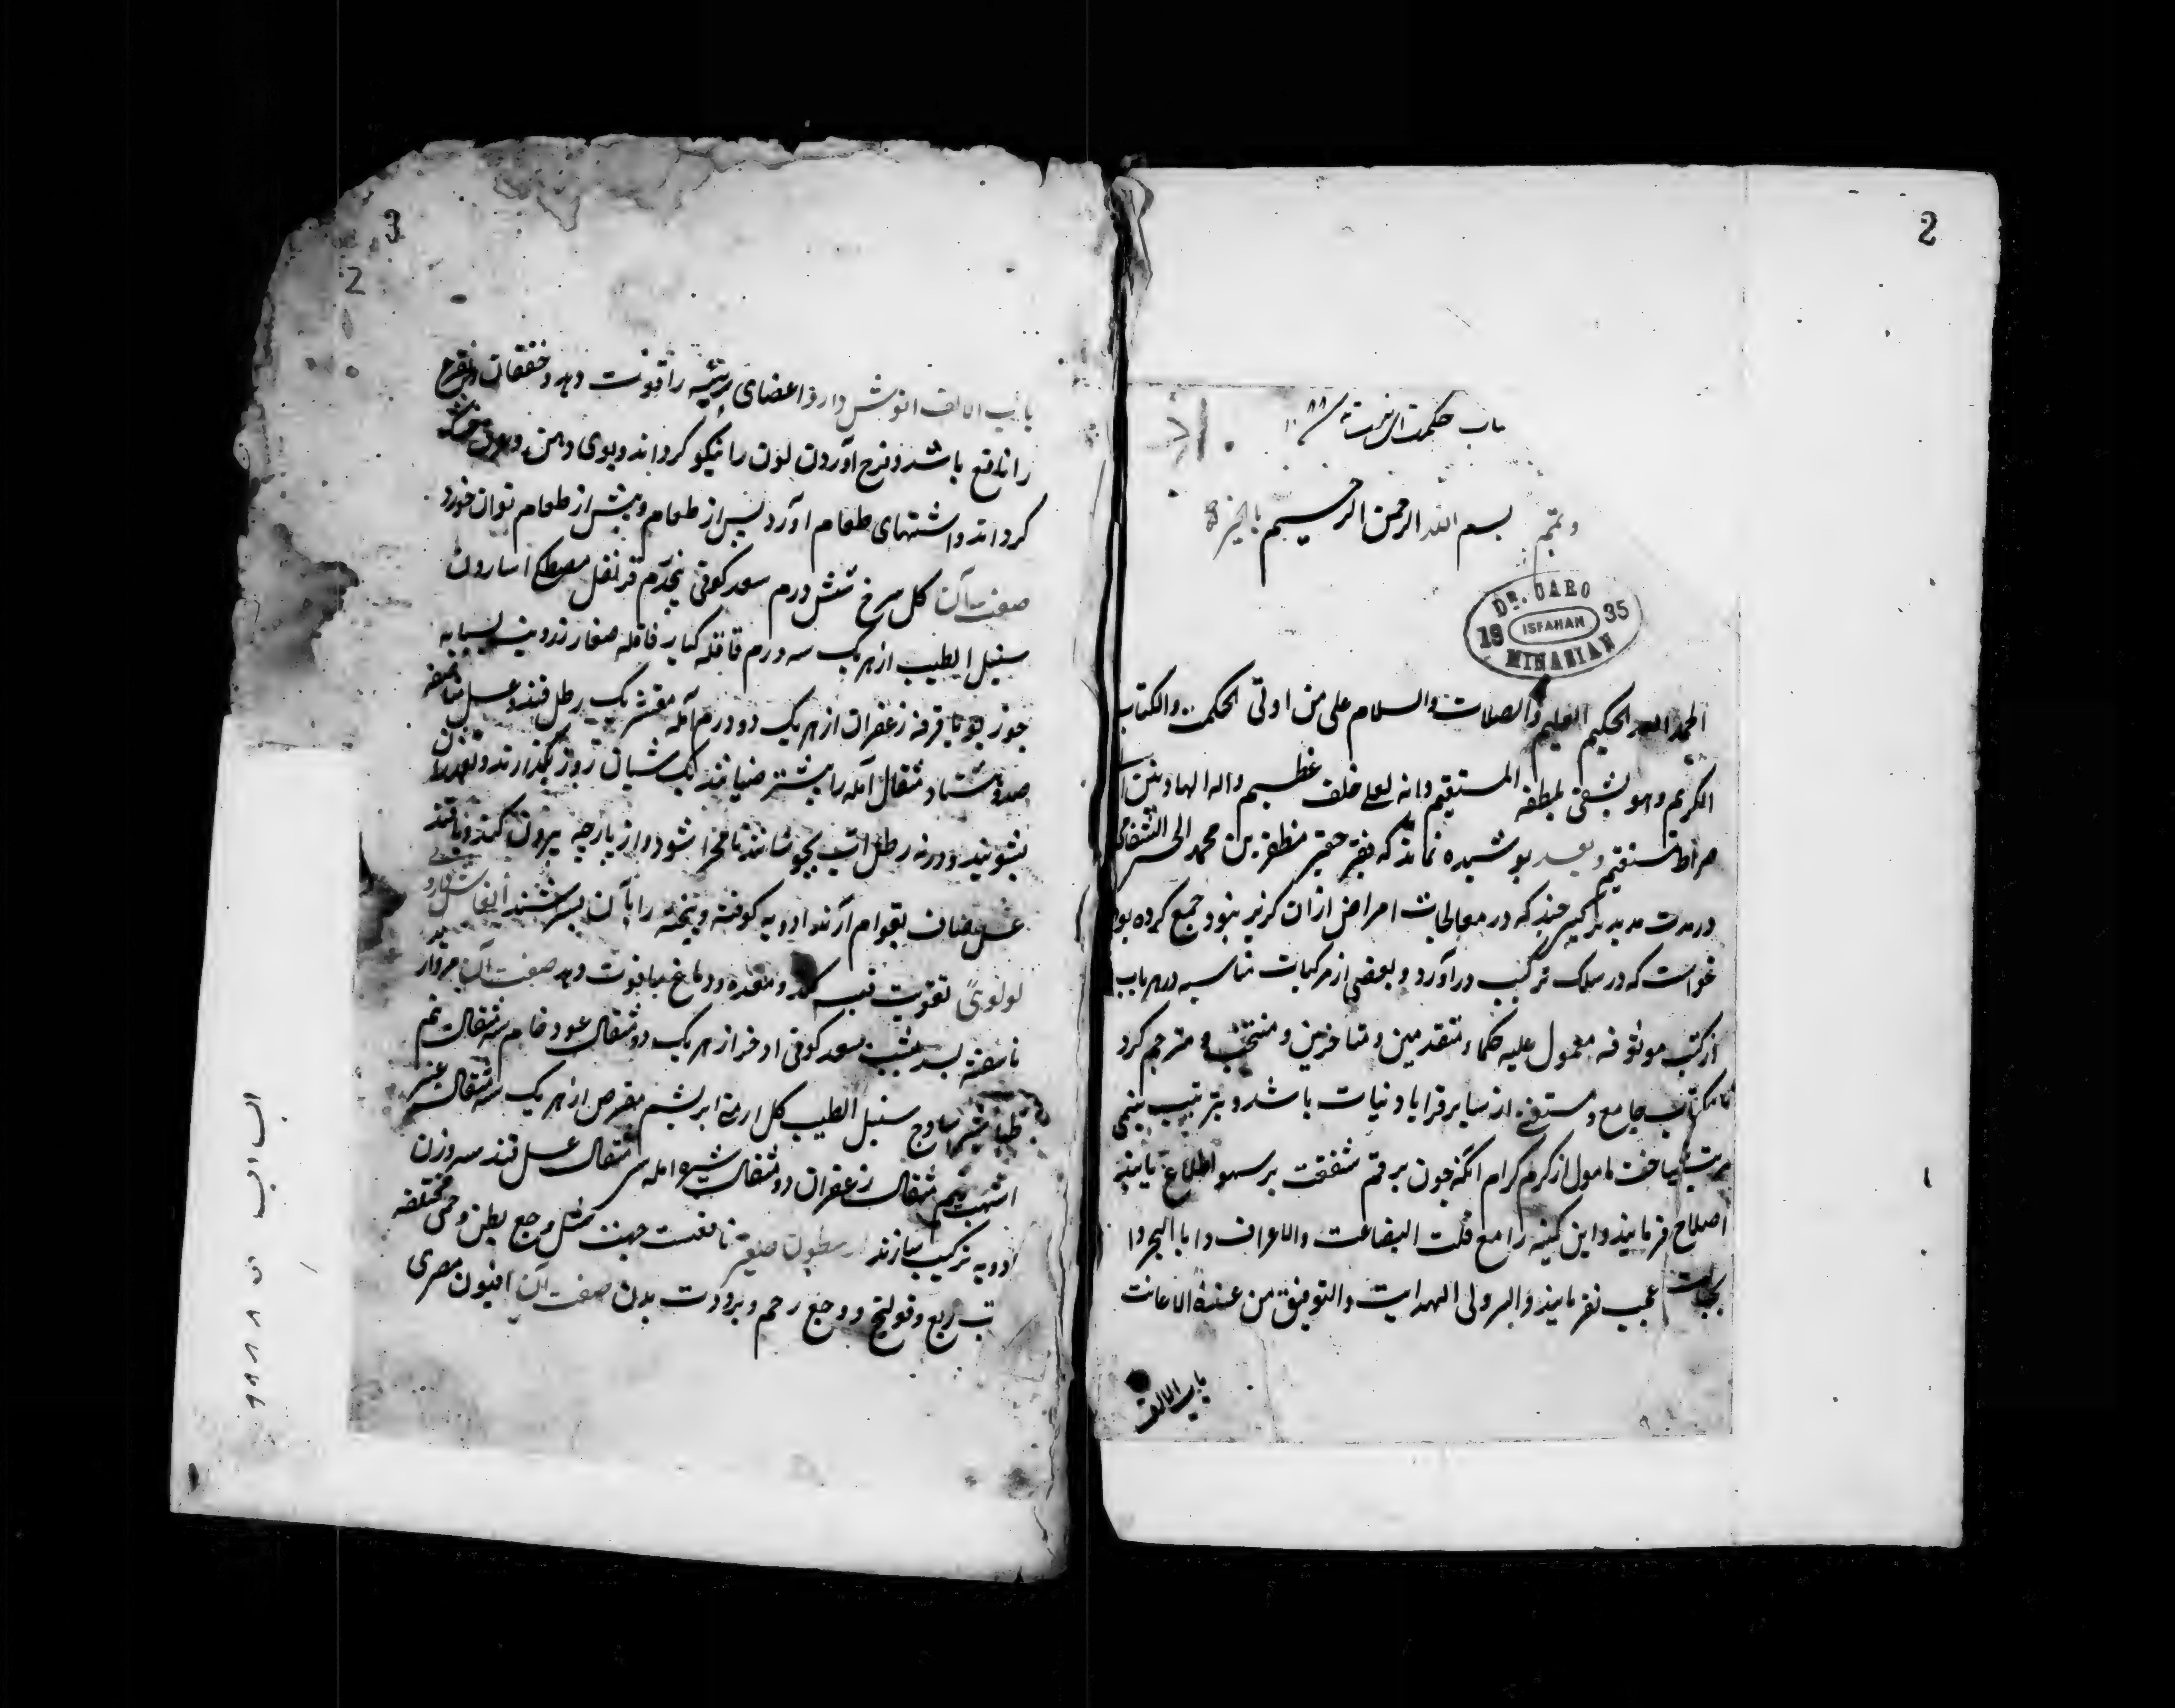 2
باب حکمت
وتمم بسم الله الرحمن الرحیم بالخیر
DR. CARO
19 ISFAHAN 35
MINASIAN
الحمد الله الحکیم العلیم والصلات والسلام علی من اوتی الحکمت والکتاب
الکریم وهو یشفی بلطفه المستقیم وانه لعلی خلق عظیم واله الهادین
صراط مستقیم وبعد پوشیده نماند که فقیر حقیر مظفر بن محمد الحسینی الشفائی
در مدت مدید تراکیبی چند که در معالجات امراض ازان گزیر نبود جمع کرده بود
خواست که در سلک ترکیب در آورد و بعضی از مرکبات مناسبه در هر باب
از کتب موثوقه معمول علیه حکماء متقدمین و متاخرین و منتخب و مترجم کرد
تا کتاب جامع و مستغنی از سایر قرابادینات باشد و بترتیب تهجی
مرتب ساخت مامول از کرم کرام انکه چون برقم شفقت بر سهو اطلاع یابند
اصلاح فرمایند و این کمینه را مع قلت البضاعت والاعراف
عیب نفرمایند والله ولی الهدایت والتوفیق من عنده الاعانت
باب الالف
3
2
باب الالف انوش دارو اعضای رئیسه را قوت دهد و خفقان
را نافع باشد و فرح آورد و لون را نیکو کرداند و بوی دهن و عرق خوش
کرداند و اشتهای طعام آورد پس از طعام و پیش از طعام توان خورد
صفت آن کل سرخ شش درم سعد کوفی پنجدرم قرنفل مصطکی اسارون
سنبل الطیب از هر یک سه درم قاقله کبار قاقله صغار زرنب بسباسه
جوز بویا قرفه زعفران از هر یک دو درم آمله مقشر یک رطل قند و عسل
صد و هشتاد مثقال آمله را بیشتر بخیسانند یک شبان روز بگذارند و بعد
بشویند و در نه رطل آب بجوشانند تا مهرا شود و از پارچه بیرون کنند و با قند
عسل صاف بقوام آرند ادویه کوفته و بیخته را بآن بسرشند انوش دارو
لولوی تقویت قلب کند و معده و دماغ را قوت دهد صفت آن مروارید
ناسفته بسد یشب سعد کوفی اذخر از هر یک دو مثقال عود خام سه مثقال نیم
طباشیر ساذج سنبل الطیب کل ارمنی ابریشم مقرض از هر یک سه مثقال عنبر
اشهب نیم مثقال زعفران دو مثقال شیره امله سی مثقال عسل قند سه وزن
ادویه ترکیب سازند ارسطون صغیر نافعست جهت سل و وجع بطن و حمی مختلفه
تب ربع و قولنج و وجع رحم و برودت بدن صفت آن افیون مصری